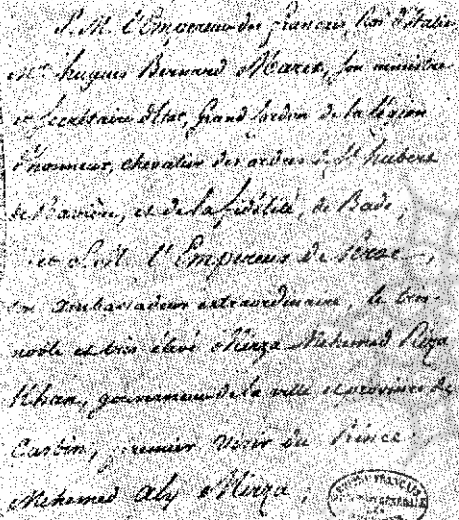 S. M. l'Empereur des français, Roi d'Italie
Mr. hugues Bernard Maret, son ministre
et secrétaire d'état, grand cordon de la légion
d'honneur, chevalier des ordres de St. hubert
de Bavière, et de la fidélité, de Bade;
et l'Empereur de Perse,
son ambassadeur extraordinaire, le très
noble et très élevé Mirza Mehemed Riza
Khan, gouverneur de la ville et province de
Casbin, premier Visir du Prince
Mehemed Aly Mirza;